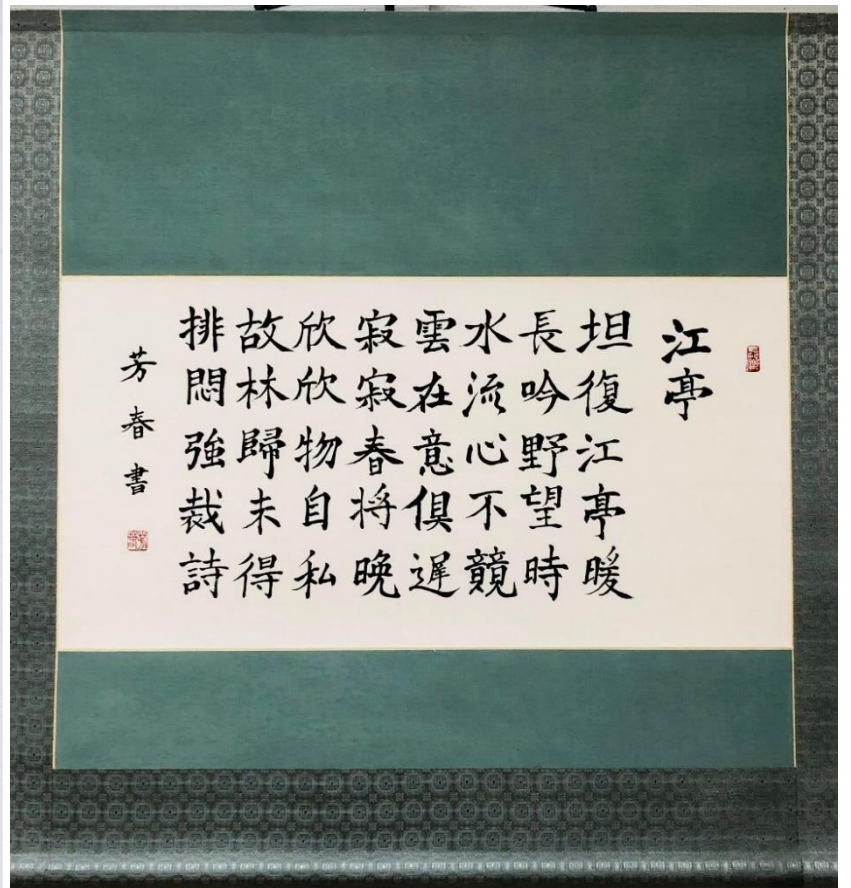 江亭
坦復江亭暖
長吟野望時
水流心不競
雲在意俱遲
寂寂春將晚
欣欣物自私
故林歸未得
排悶強裁詩
芳春書